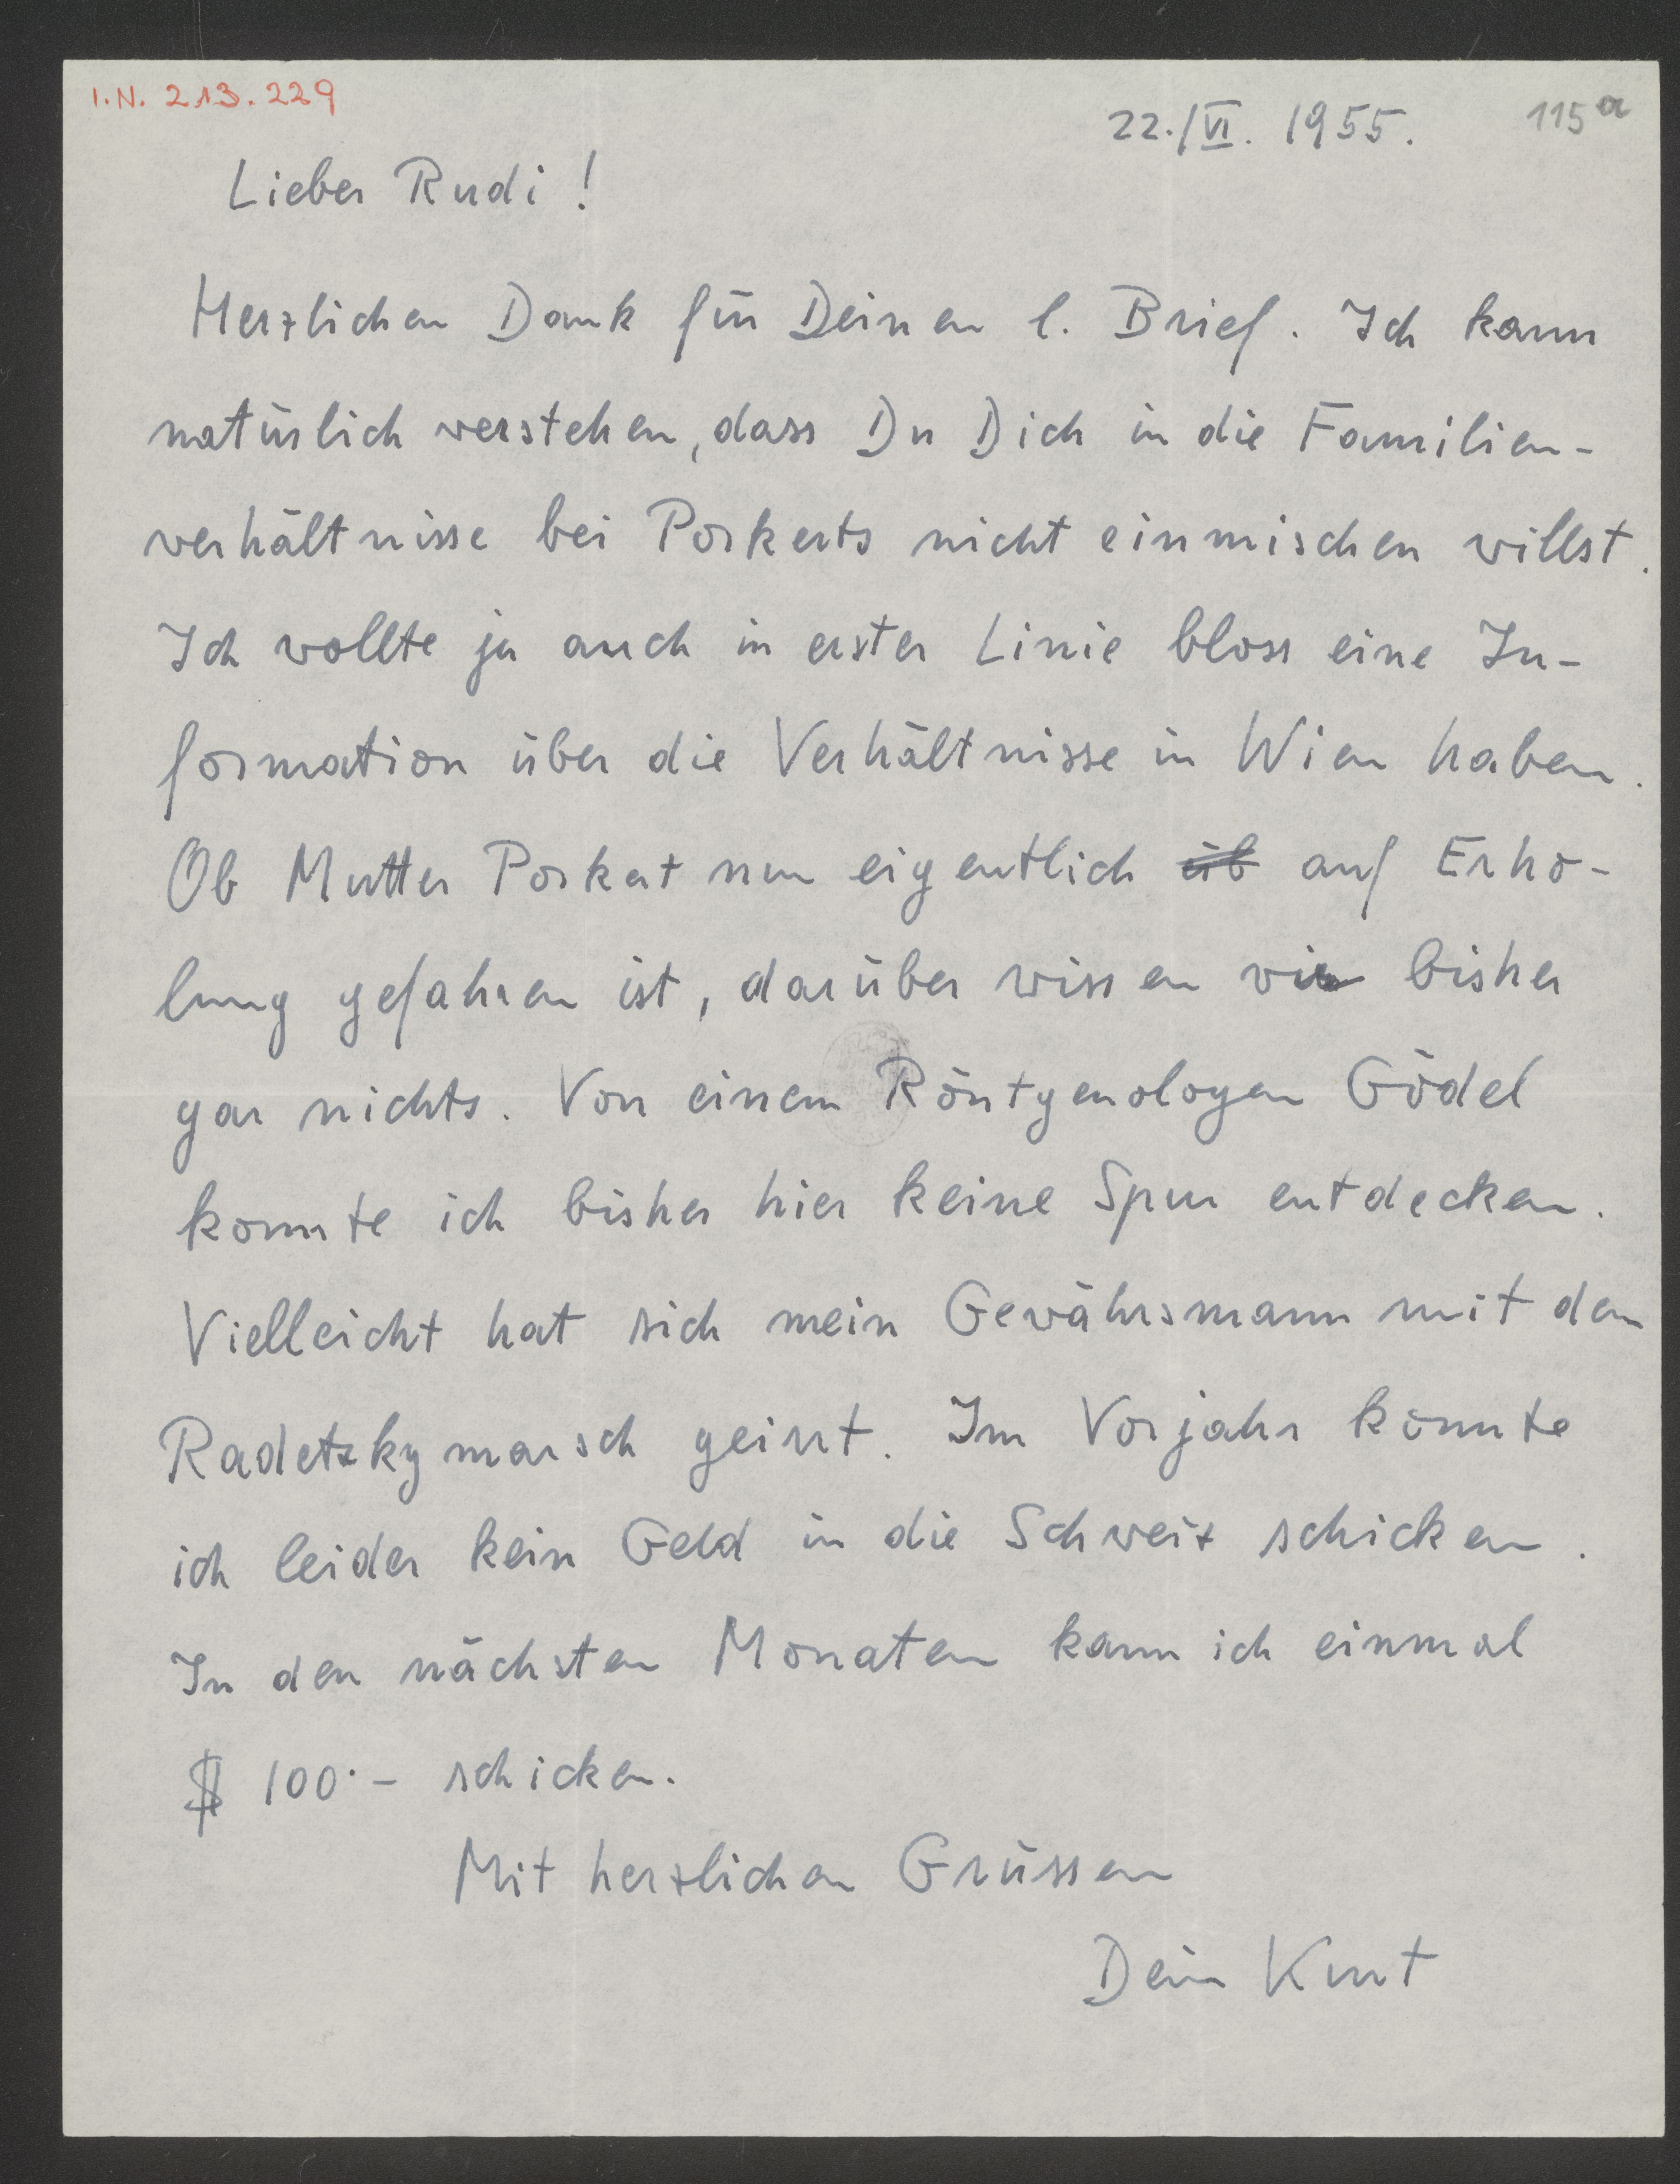 I.N. 213.229
22./VI. 1955.
115a
Lieber Rudi!
Herzlichen Dank für Deinen l. Brief. Ich kann
natürlich verstehen, dass Du Dich in die Familien-
verhältnisse bei Porkerts nicht einmischen willst.
Ich wollte ja auch in erster Linie bloss eine In-
formation über die Verhältnisse in Wien haben.
Ob Mutter Porkert nun eigentlich üb auf Erho-
lung gefahren ist, darüber wissen wir bisher
gar nichts. Von einem Röntgenologen Gödel
konnte ich bisher hier keine Spur entdecken.
Vielleicht hat sich mein Gewährsmann mit dem
Radetzkymarsch geirrt. Im Vorjahr konnte
ich leider kein Geld in die Schweiz schicken.
In den nächsten Monaten kann ich einmal
$ 100·- schicken.
Mit herzlichen Grüssen
Dein Kurt